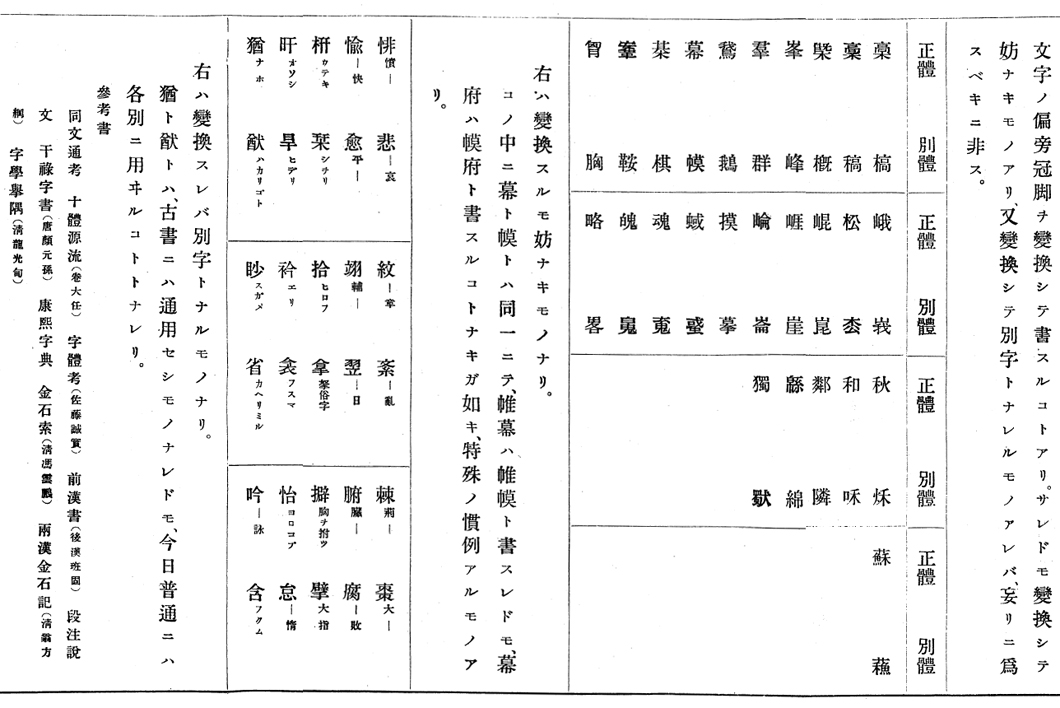 文字ノ偏旁冠脚ヲ變換シテ書スルコトアリ。サレドモ變換シテ
妨ナキモノアリ、又變換シテ別字トナレルモノアレバ、妄リニ爲
スベキニ非ス。
正體 別體 正體 別體 正體 別體 正體 別體
槀 槁 峨 峩 秋 秌 蘇 蘓
稾 稿 松 枩 和 咊
槩 概 崐 崑 鄰 隣
峯 峰 崕 崖 緜 綿
羣 群 崘 崙 獨
鵞 鵝 摸 摹
幕 幙 蜮
棊 棋 魂
鞌 鞍 魄
胷 胸 略 畧
右ハ變換スルモ妨ナキモノナリ。
コノ中ニ幕ト幙トハ同一ニテ、帷幕ハ帷幙ト書スレドモ、幕
府ハ幙府ト書スルコトナキガ如キ、特殊ノ慣例アルモノア
リ。
悱憤ー 悲ー哀 紋ー章 紊ー亂 棘荊ー 棗大ー
愉ー快 愈平ー 翊輔ー 翌ー日 腑臟ー 腐ー敗
枅カテキ 栞シヲリ 拾ヒロフ 拿拏俗字 擗胸ヲ拊ツ 擘大指
旰オソシ 旱ヒデリ 衿エリ 衾フスマ 怡ヨロコブ 怠ー惰
猶ナホ 猷ハカリゴト 眇スガメ 省カヘリミル 吟ー詠 含フクム
右ハ變換スレバ別字トナルモノナリ。
猶ト猷トハ、古書ニハ通用セシモノナレドモ、今日普通ニハ
各別ニ用ヰルコトトナレリ。
參考書
同文通考 十體源流(卷大任) 字體考(佐藤誠實) 前漢書(後漢班固) 段注說
文 干祿字書(唐顏元孫) 康熙字典 金石索(清馮雲鵬) 兩漢金石記(清翁方
綱) 字學擧隅(清龍光甸)